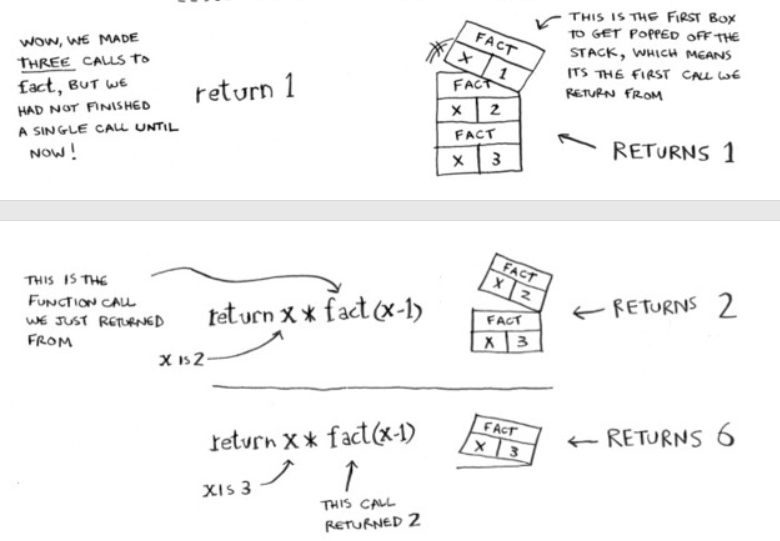 WOW, WE MADE
THREE CALLS TO
fact, BUT WE
HAD NOT FINISHED
A SINGLE CALL UNTIL
NOW!
return 1
FACT
X 1
FACT
X 2
FACT
X 3
THIS IS THE FIRST BOX
TO GET POPPED OFF THE
STACK, WHICH MEANS
ITS THE FIRST CALL WE
RETURN FROM
RETURNS 1
THIS IS THE
FUNCTION CALL
WE JUST RETURNED
FROM
return x * fact(x-1)
X IS 2
FACT
X 2
FACT
X 3
RETURNS 2
return x * fact(x-1)
X IS 3
THIS CALL
RETURNED 2
FACT
X 3
RETURNS 6